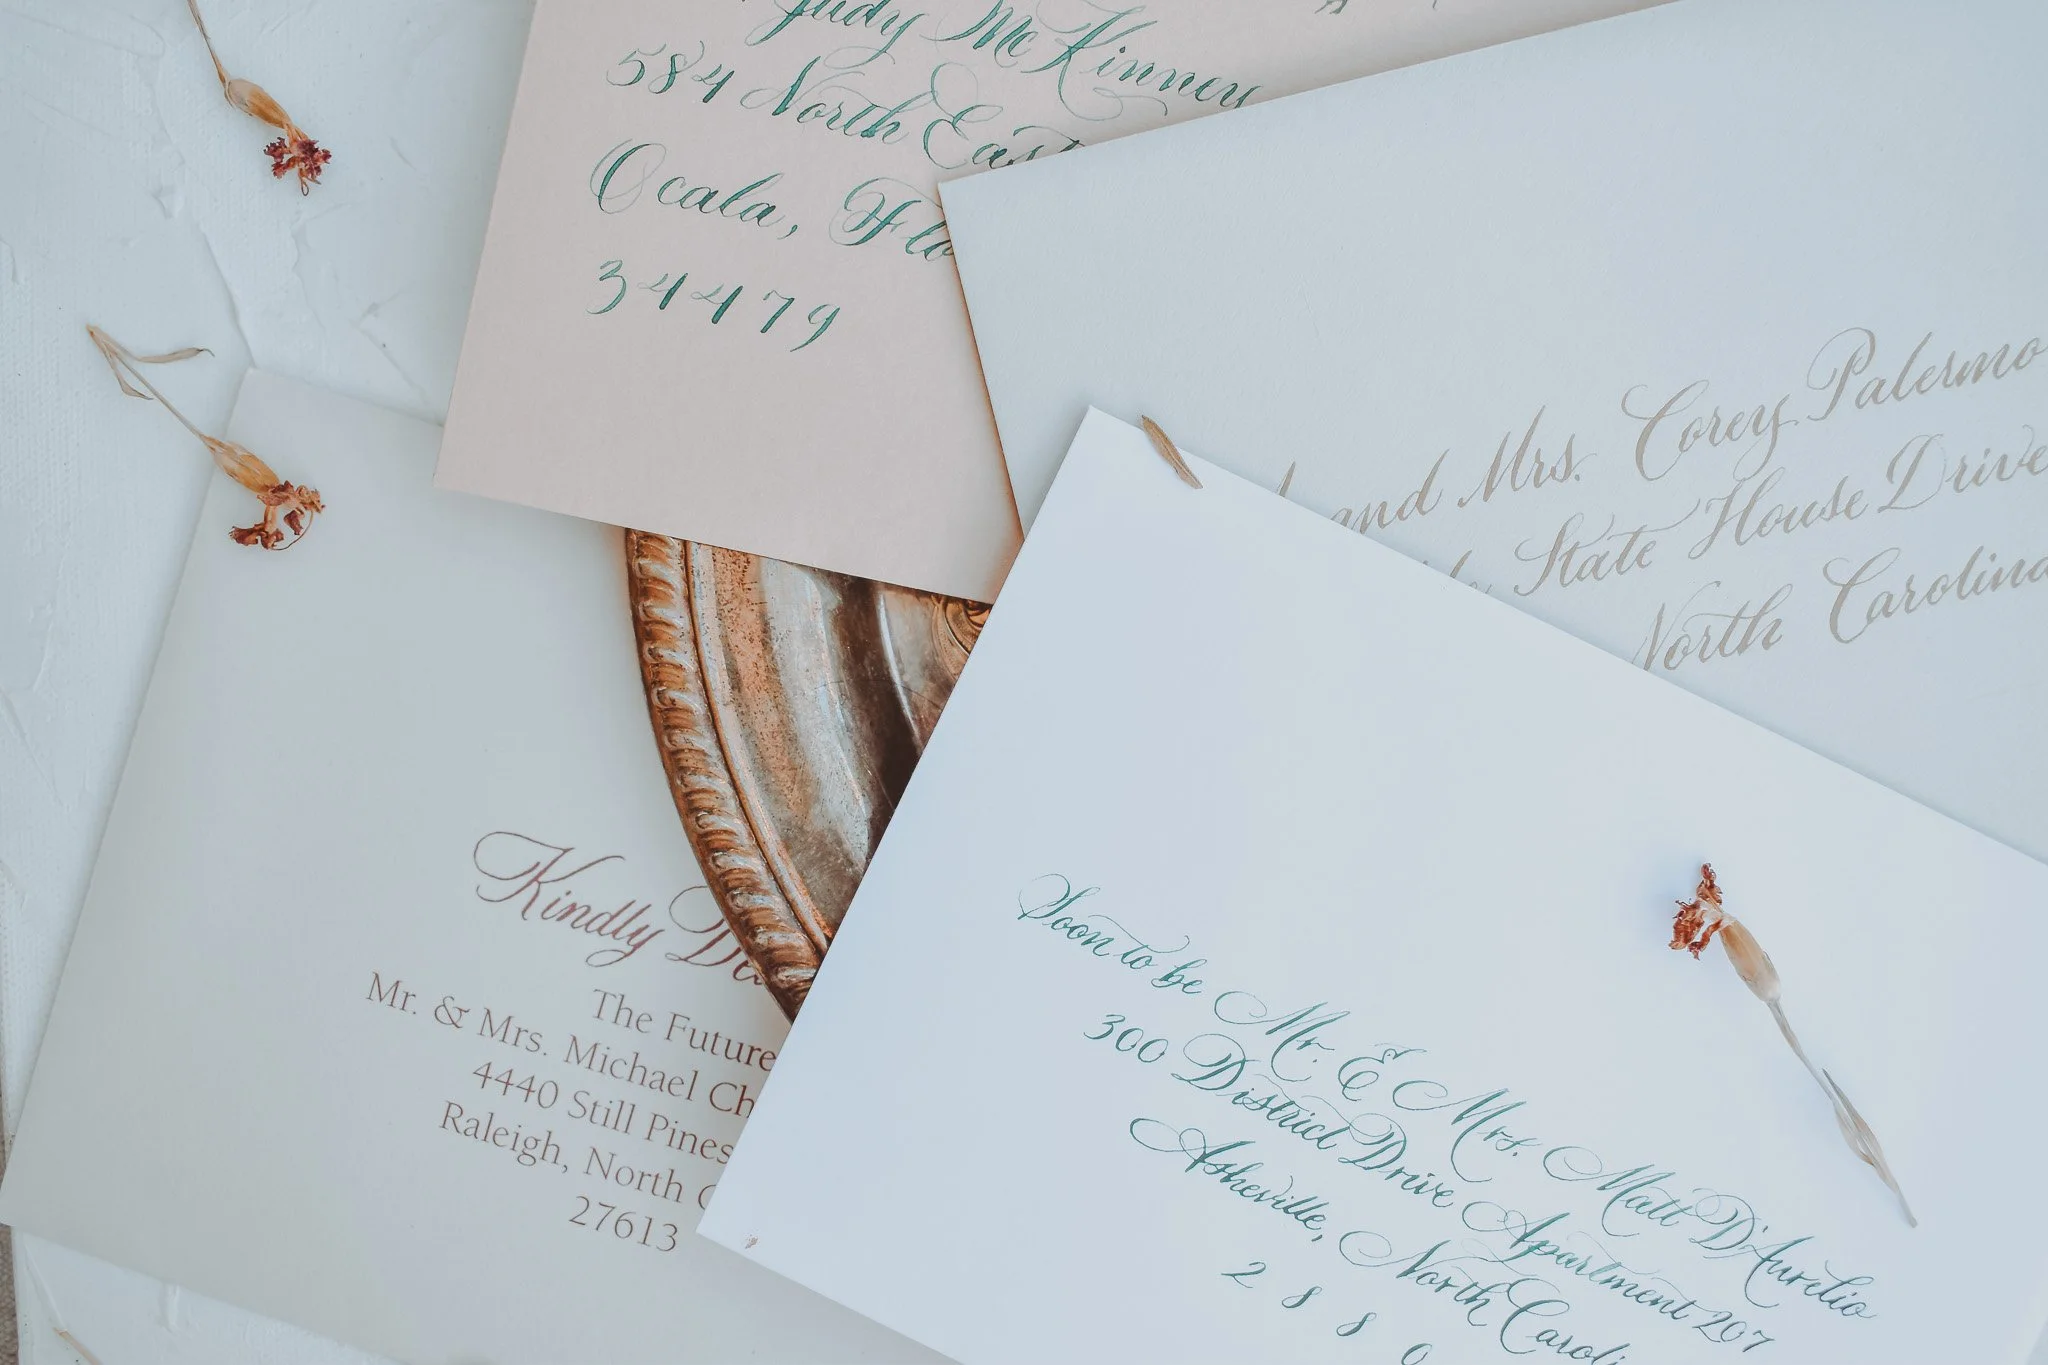 Judy McKinney
584 North East
Ocala, Flo
34479
and Mrs. Corey Palermo
State House Drive
North Carolina
Kindly De
The Future
Mr. & Mrs. Michael Ch
4440 Still Pines
Raleigh, North C
27613
Soon to be Mr. & Mrs. Matt D'Aurelio
300 District Drive Apartment 207
Asheville, North Caroli
2880